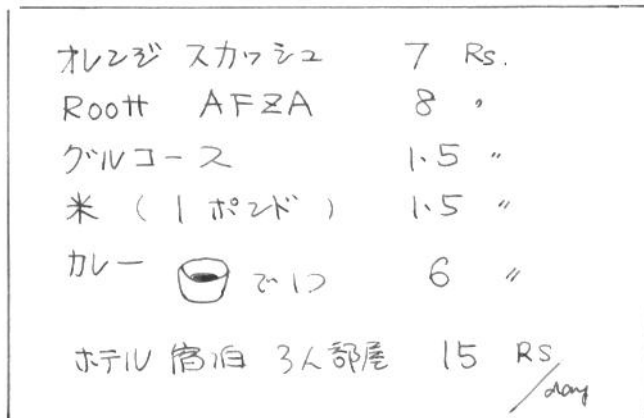 オレンジ スカッシュ 7 Rs.
Rooth AFZA 8 〃
グルコース 1.5 〃
米 (1 ポンド) 1.5 〃
カレー で1つ 6 〃
ホテル 宿泊 3人部屋 15 RS
/day